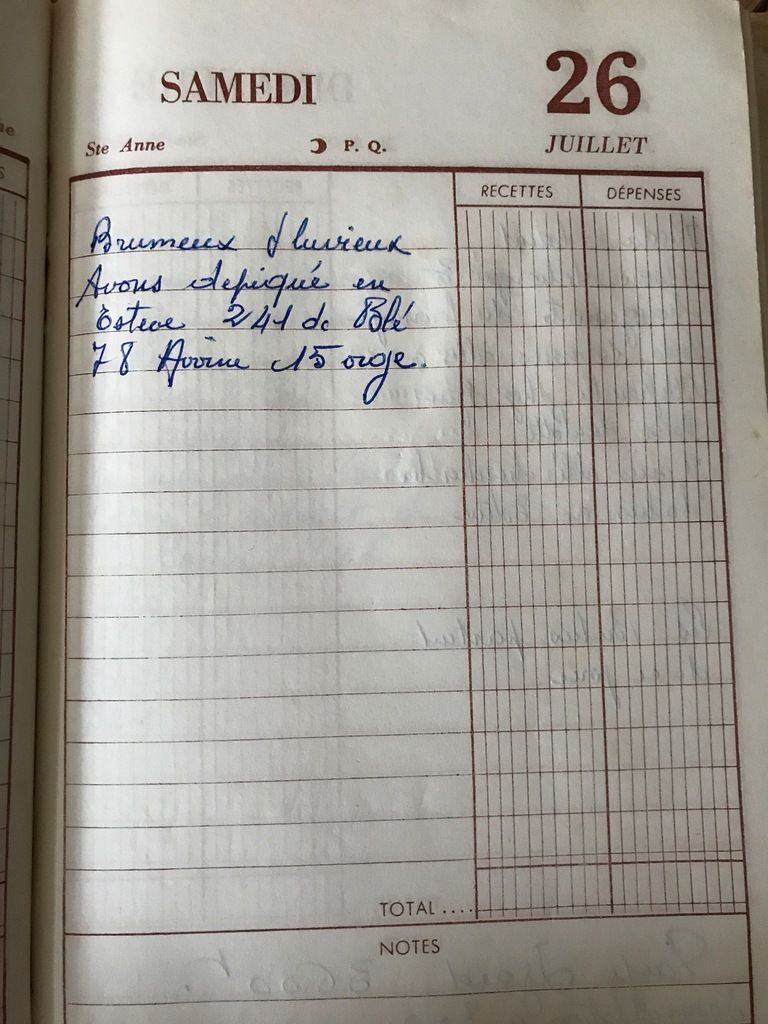 SAMEDI 26
Ste Anne P. Q. JUILLET
RECETTES DÉPENSES
Brumeux Pluvieux
Avons depiqué en
Esteve 241 de Blé
78 Avoine 15 orge.
TOTAL ....
NOTES